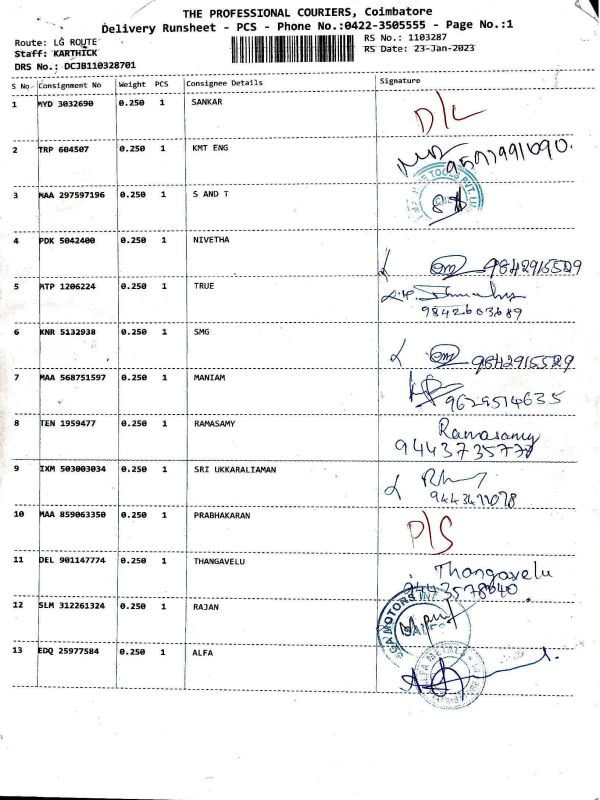 THE PROFESSIONAL COURIERS, Coimbatore
Delivery Runsheet - PCS - Phone No.:0422-3505555 - Page No.:1
Route: LG ROUTE RS No.: 1103287
Staff: KARTHICK RS Date: 23-Jan-2023
DRS No.: DCJB110328701
S No Consignment No Weight PCS Consignee Details Signature
1 MYD 3032690 0.250 1 SANKAR D/L
2 TRP 604507 0.250 1 KMT ENG
3 MAA 297597196 0.250 1 S AND T
4 PDK 5042400 0.250 1 NIVETHA 9842915529
5 MTP 1206224 0.250 1 TRUE
9842603689
6 KNR 5132938 0.250 1 SMG 9842915529
7 MAA 568751597 0.250 1 MANIAM 9629514635
8 TEN 1959477 0.250 1 RAMASAMY Ramasamy
9443735778
9 IXM 503003034 0.250 1 SRI UKKARALIAMAN
10 MAA 859063350 0.250 1 PRABHAKARAN P/S
11 DEL 901147774 0.250 1 THANGAVELU Thangavelu
9443578640
12 SLM 312261324 0.250 1 RAJAN
13 EDQ 25977584 0.250 1 ALFA